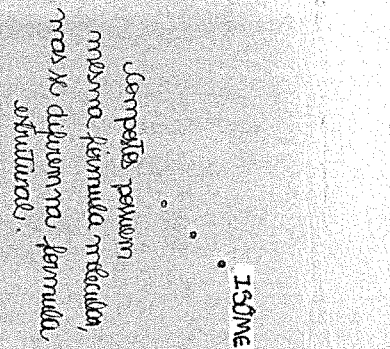 ISÔME
Compostos possuem
mesma fórmula molecular,
mas se diferem na formula
estrutural.